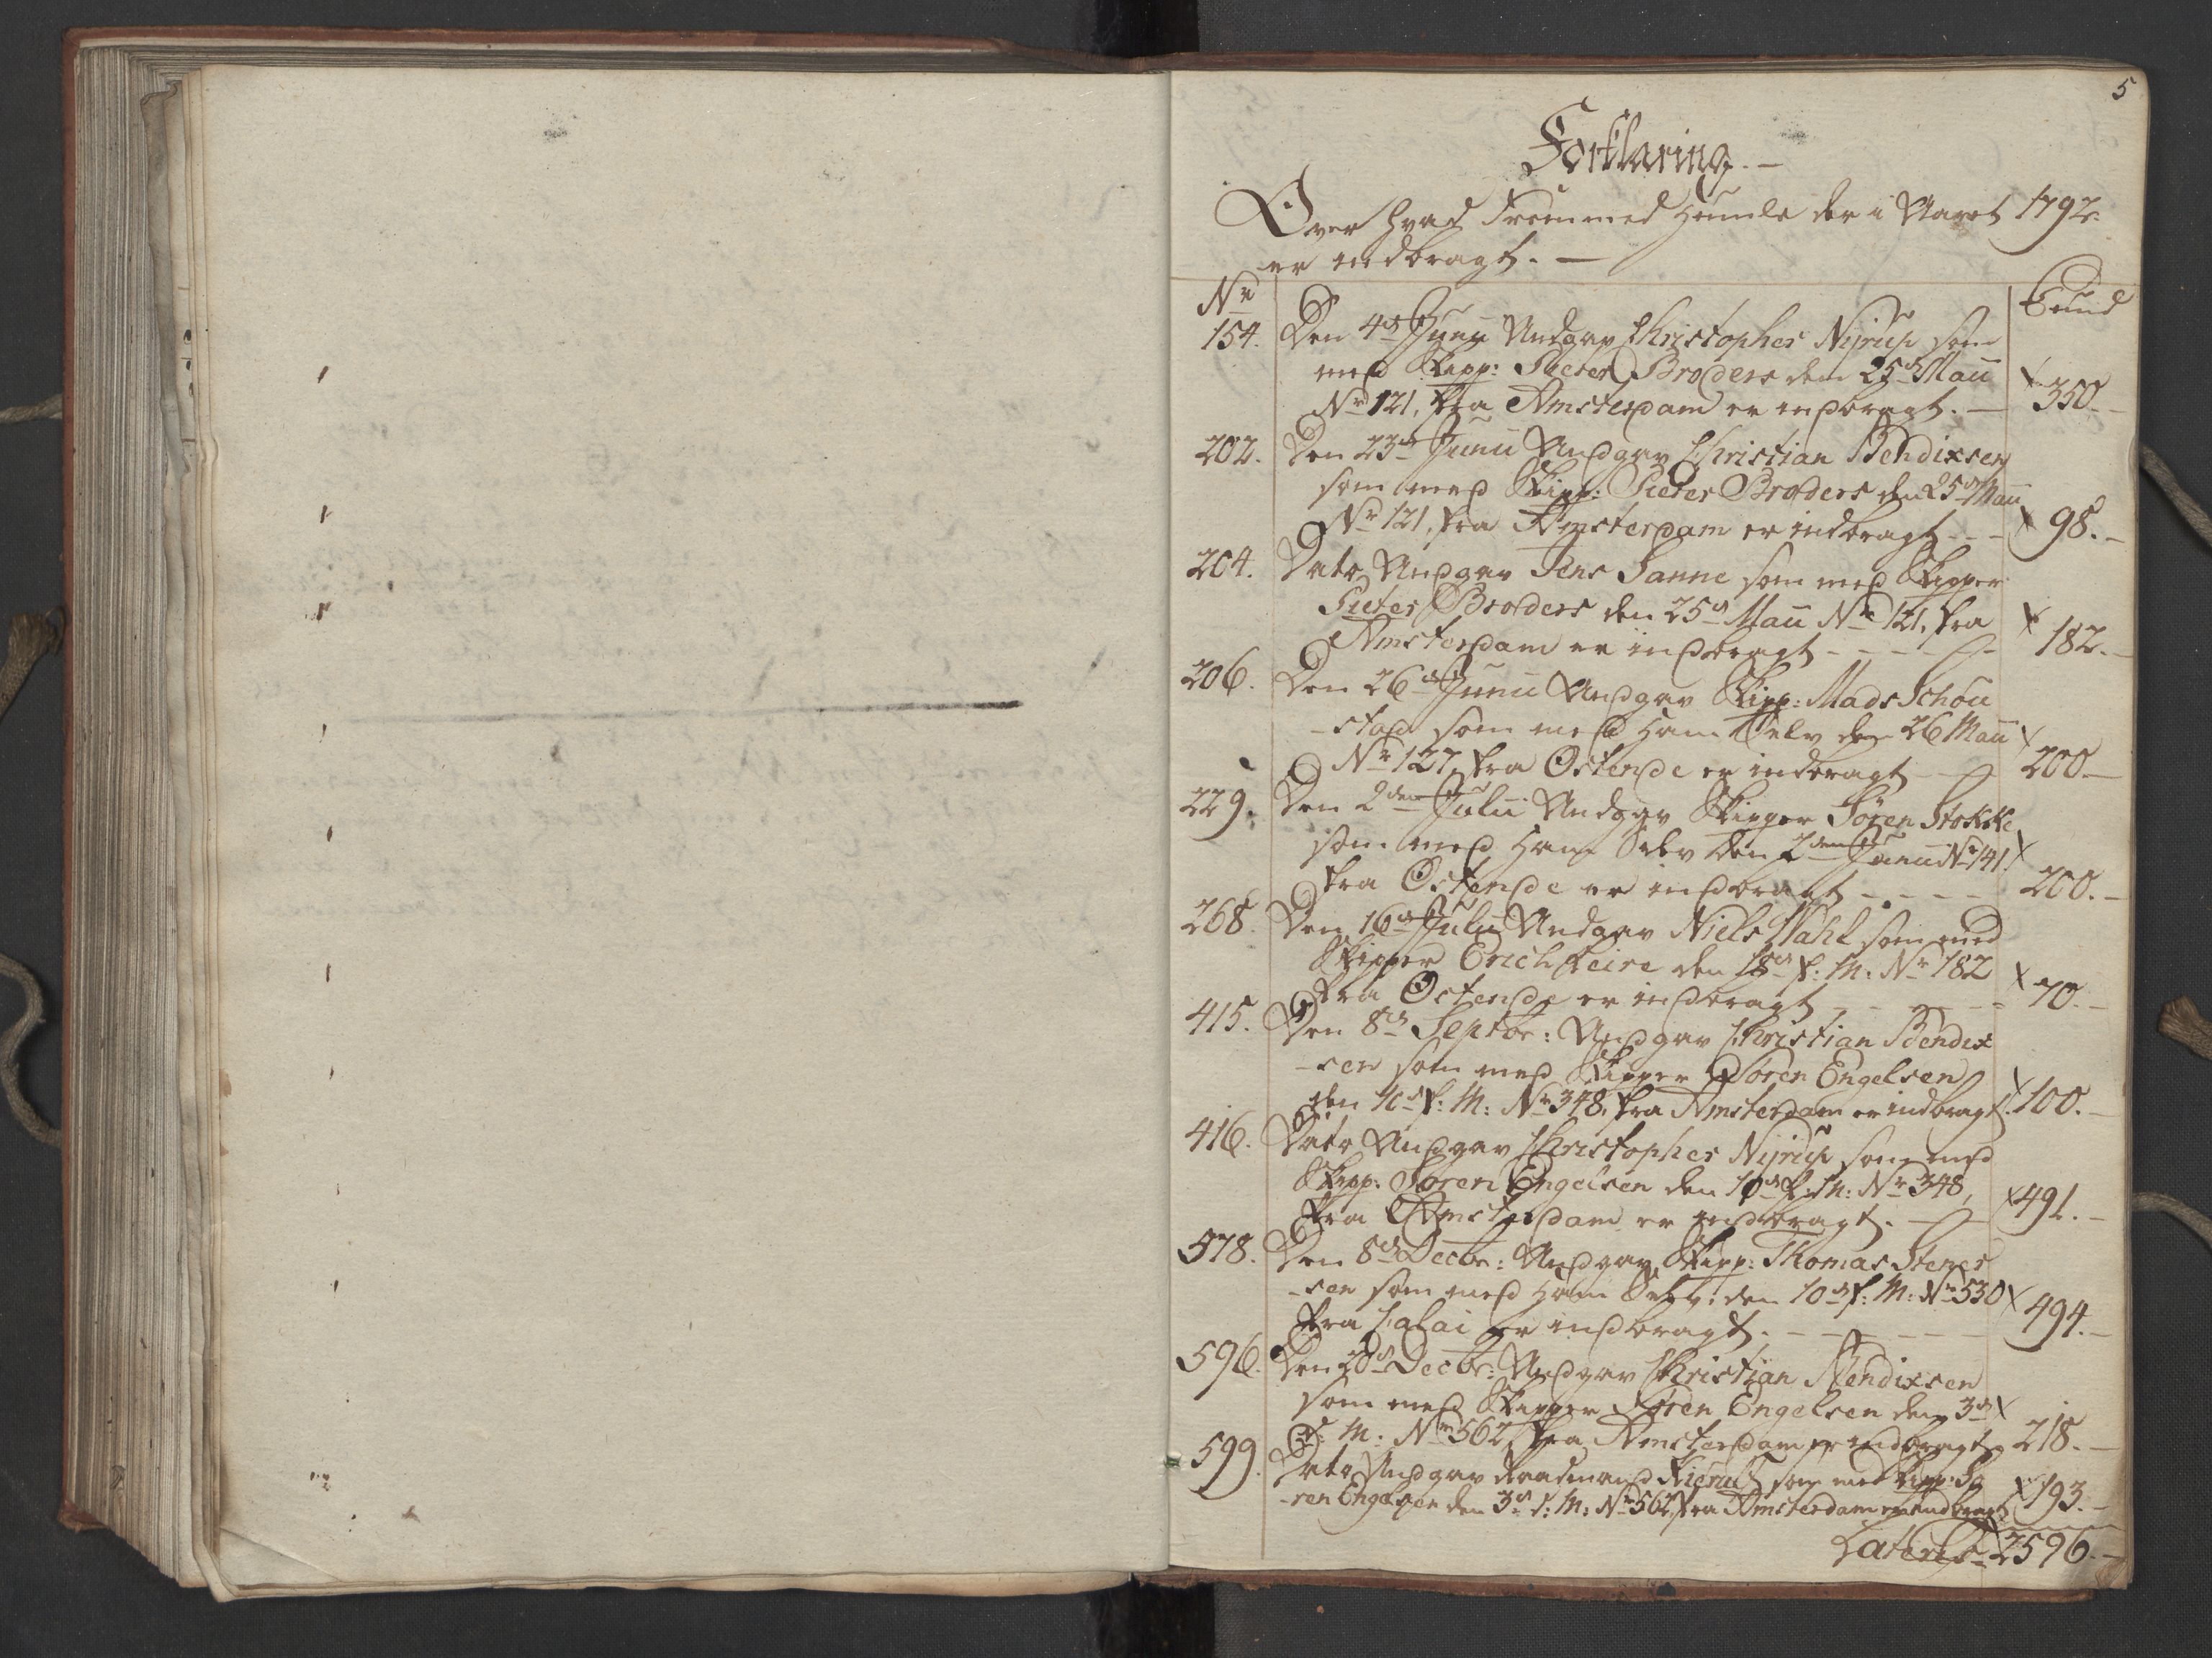 5
Forklaring. —
Over hvad Fremmed Humle der i Aaret 1792.
er indbragt. —
Nr Pund
154. Den 4de Junii Angav Christopher Nijrup som
med Skipp: Pieter Broders den 25de Maii
No 121, fra Amsterdam er indbragt. — 350. —
202. Den 23de Junii Angav Christian Bendixsen
som med Skipp: Pieter Broders den 25de Maii
No 121, fra Amsterdam er indbragt - - 98. —
204. Dato Angav Jens Sanne som med Skipper
Pieter Broders den 25de Maii No 121, fra
Amsterdam er indbragt - - - - 182. —
206. Den 26de Junii Angav Skipp: Mads Schou
-stad som med Ham Selv den 26 Maii
No 127, fra Ostende er indbragt - - 200. —
229. Den 2den Julii Angav Skipper Sören Stokke
som med Ham Selv den 2den Junii No 141
fra Ostende er indbragt - - - - 200. —
268. Den 16de Julii Angav Niels Wahl som med
Skipper Erich Feire den 18de f: M: No 182
fra Ostende er indbragt - - - - 70. —
415. Den 8de Septbr: Angav Christian Bendix
-sen som med Skipper Sören Engelsen
den 10de f: M: No 348, fra Amsterdam er indbragt. 100. —
416. Dato Angav Christopher Nijrup som med
Skipp: Sören Engelsen den 10de f: M: No 348,
fra Amsterdam er indbragt. — 491. —
578. Den 8de Decbr: Angav Skipp: Thomas Stener
-sen som med Ham Selv den 10de f: M: No 530
fra Calai er indbragt. - - - - 494. —
596. Den 20de Decbr: Angav Christian Bendixsen
som med Skipper Sören Engelsen den 3de
d: M: No 562, fra Amsterdam er indbragt 218. —
599. Dato Angav Raadmand Kierulf som med Skipp: Sö
-ren Engelsen den 3de d: M: No 562, fra Amsterdam er indbragt 193. —
Lateris — 2596. —